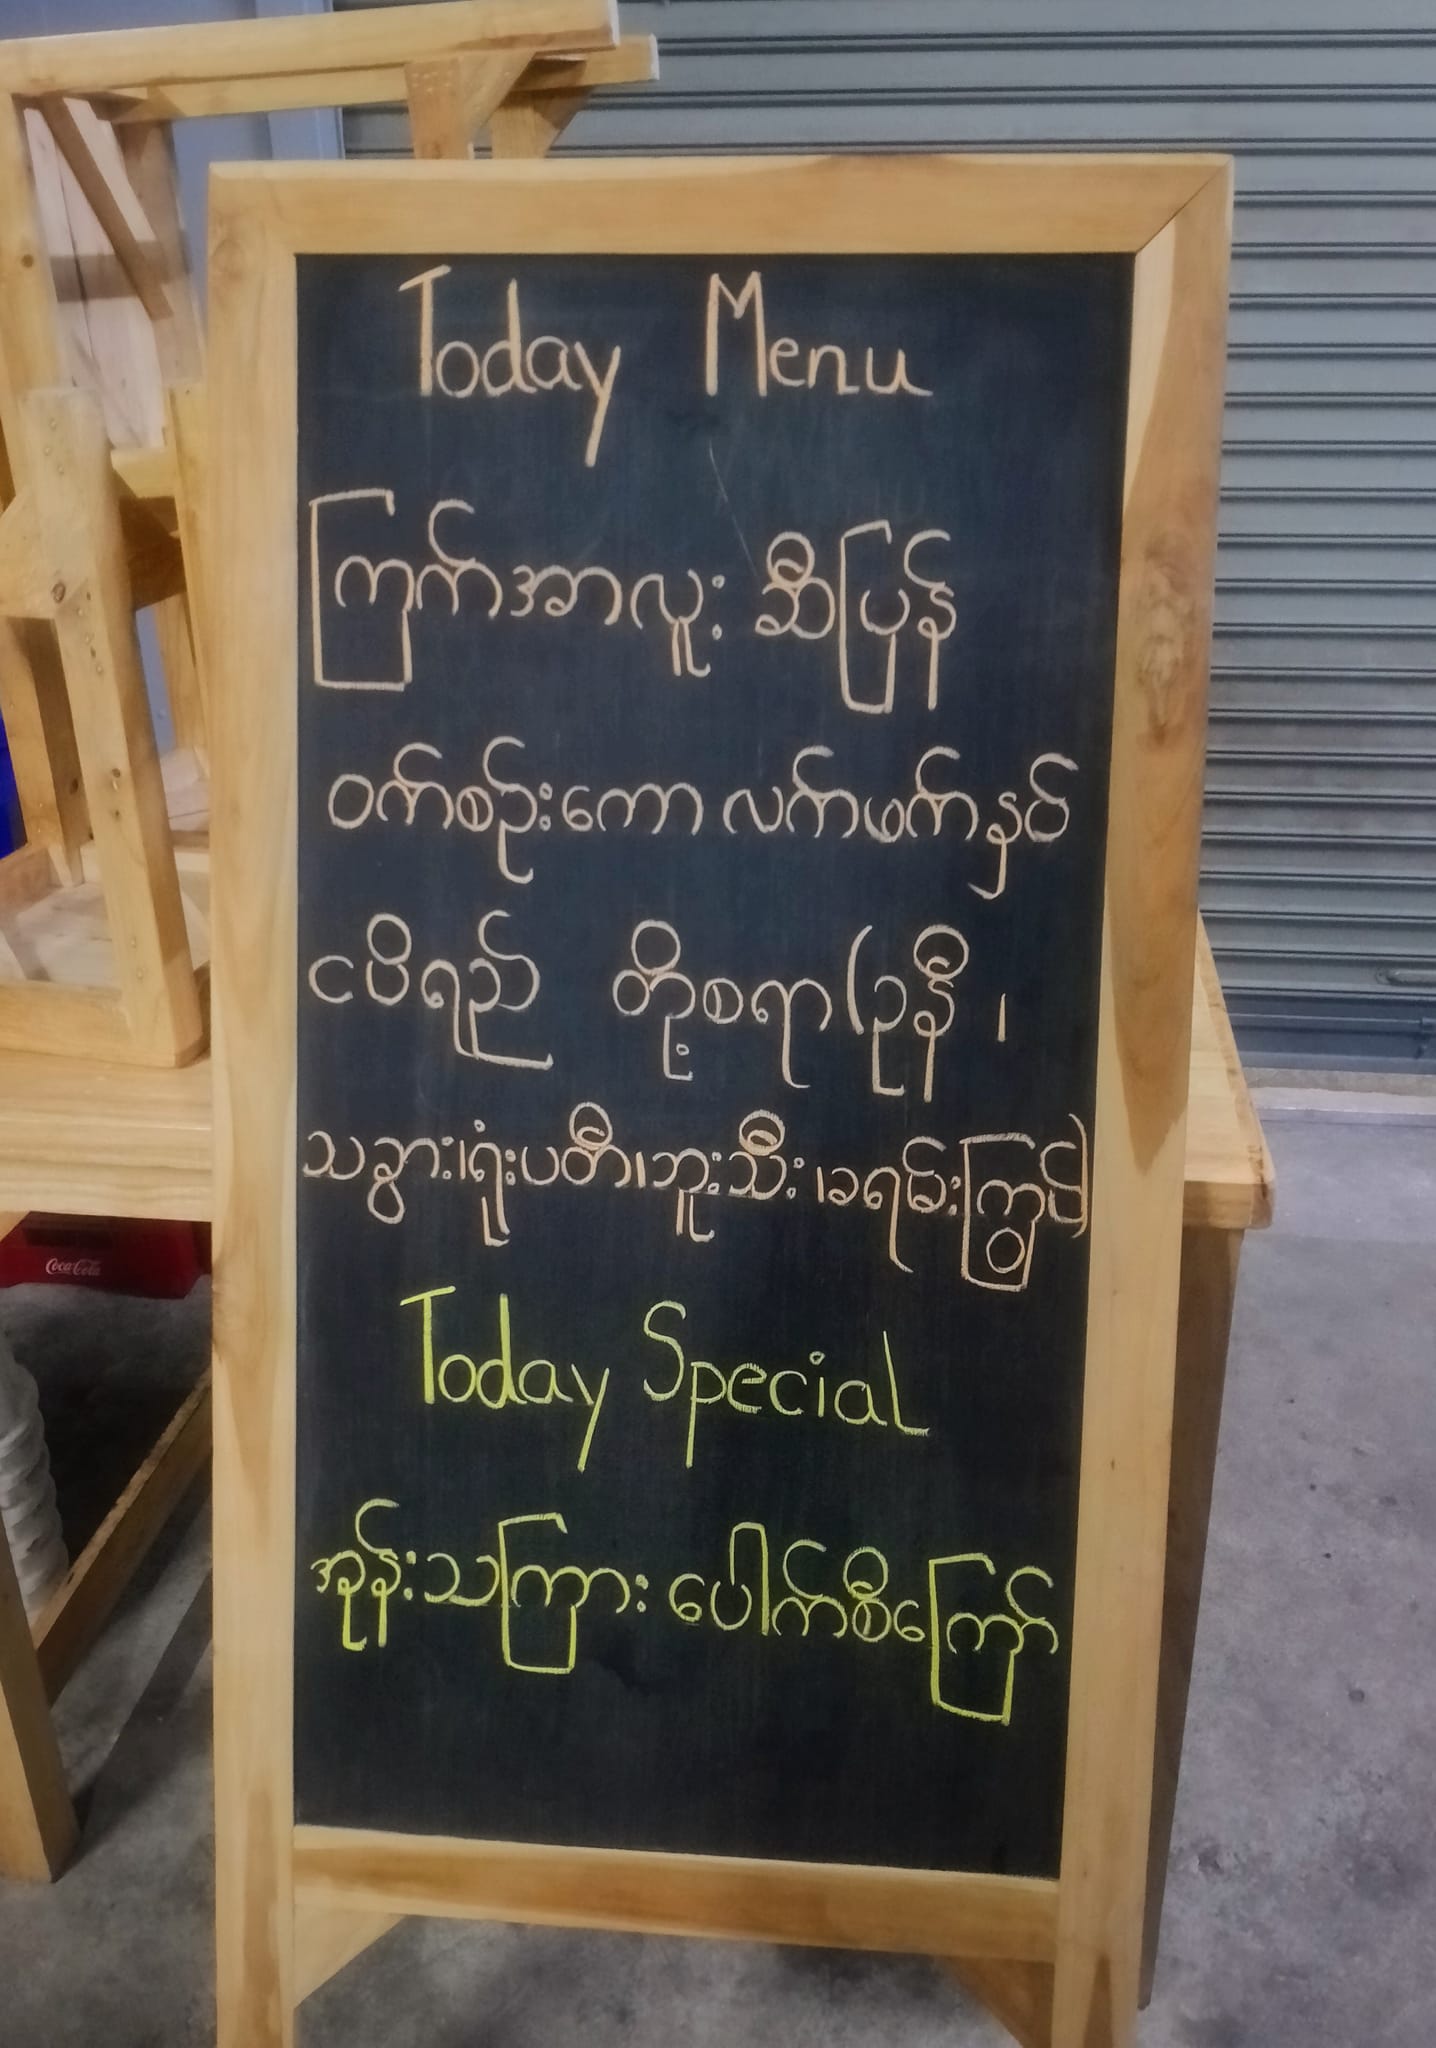 Today Menu
ကြက်အာလူး ဆီပြန်
ဝက်စဉ်းကော လက်ဖက်နှပ်
ငပိရည် တို့စရာ(ဥနီ ၊
သခွား၊ရုံးပတီ၊ဘူးသီး ၊ခရမ်းကြွပ်)
Today Special
အုန်းသကြား ပေါက်စီကြော်
Coca-Cola